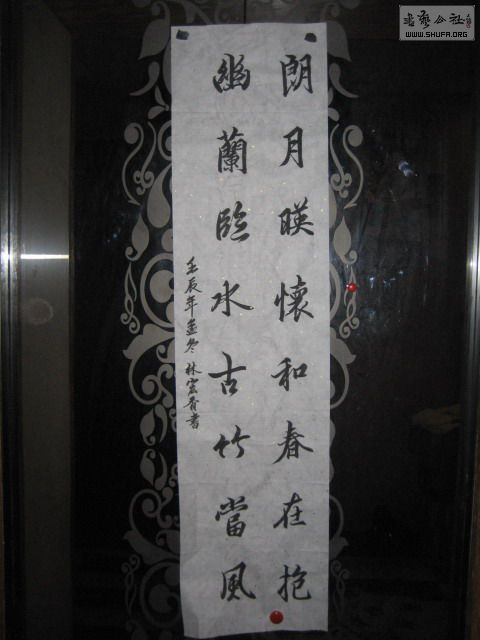 朗月暎懷和春在抱
幽蘭臨水古竹當風
壬辰年孟冬 林宏青書
书艺公社
WWW.SHUFA.ORG